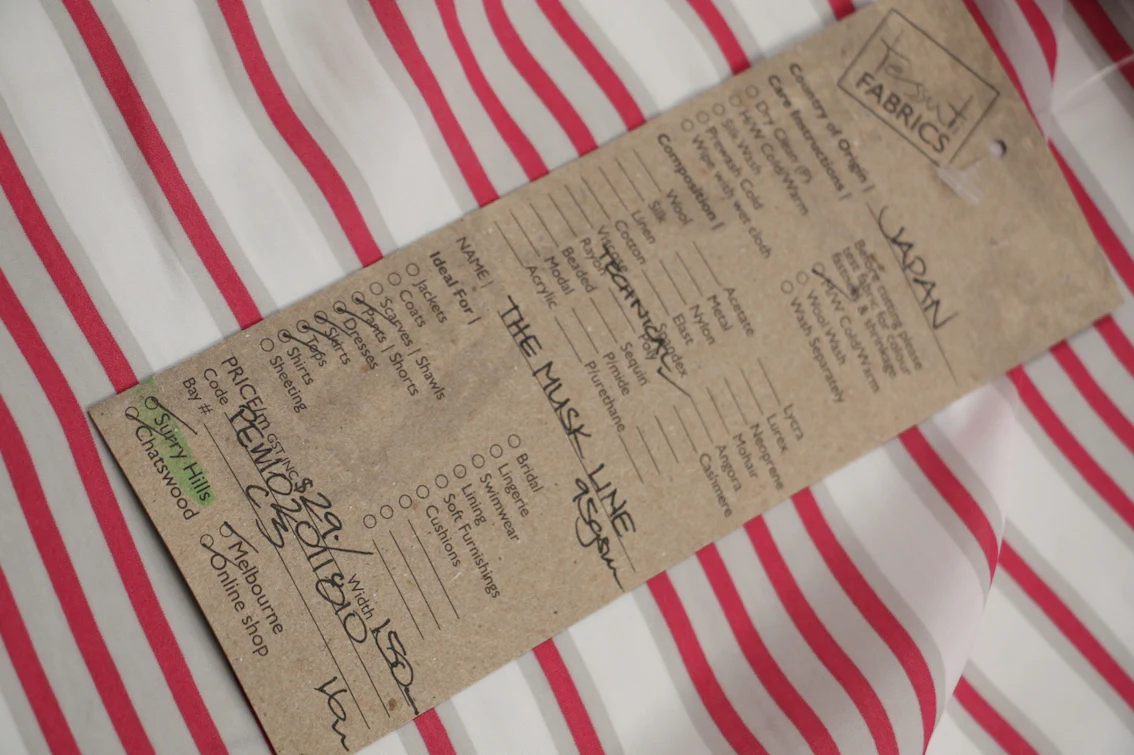 Tessuti
FABRICS
Country of Origin | JAPAN
Care Instructions |
Dry Clean (P)
H/W Cold/Warm
Silk Wash
Prewash Cold
Wipe with wet cloth
Before cutting please
test for colour
fastness & shrinkage
H/W Cold/Warm
Wool Wash
Wash Separately
Composition |
Wool
Silk
Linen
Cotton
Viscose
Rayon
Beaded
Modal
Acrylic
Acetate
Metal
Nylon
Elast
Spandex
Poly
Sequin
P/mide
P/urethane
Lycra
Lurex
Neoprene
Mohair
Angora
Cashmere
NAME | THE MUSK LINE
95gsm
Ideal For |
Jackets
Coats
Scarves | Shawls
Pants | Shorts
Dresses
Skirts
Tops
Shirts
Sheeting
Bridal
Lingerie
Swimwear
Lining
Soft Furnishings
Cushions
PRICE/m GST INC $29.
Width 150
Code
Bay #: C3
Surry Hills
Chatswood
Melbourne
Online shop